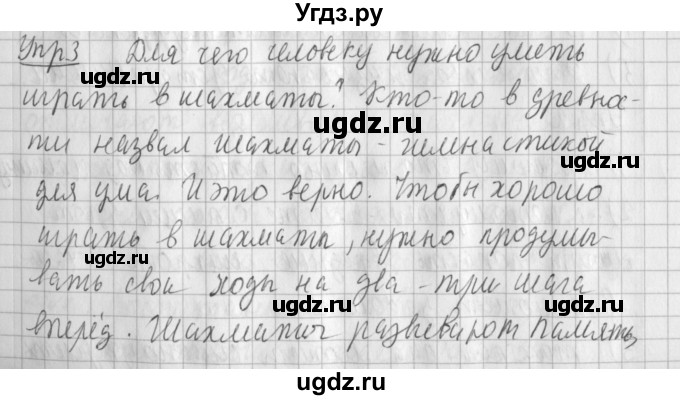 Угдз.ру
Упр3 Для чего человеку нужно уметь
играть в шахматы? Кто-то в древнос-
ти назвал шахматы - гимнастикой
для ума. И это верно. Чтобы хорошо
играть в шахматы, нужно продумы-
вать свои ходы на два - три шага
вперёд. Шахматы развивают память,
ugdz.ru
ugdz.ru
ugdz.ru
ugdz.ru
ugdz.ru
ugdz.ru
ugdz.ru
ugdz.ru
ugdz.ru
ugdz.ru
ugdz.ru